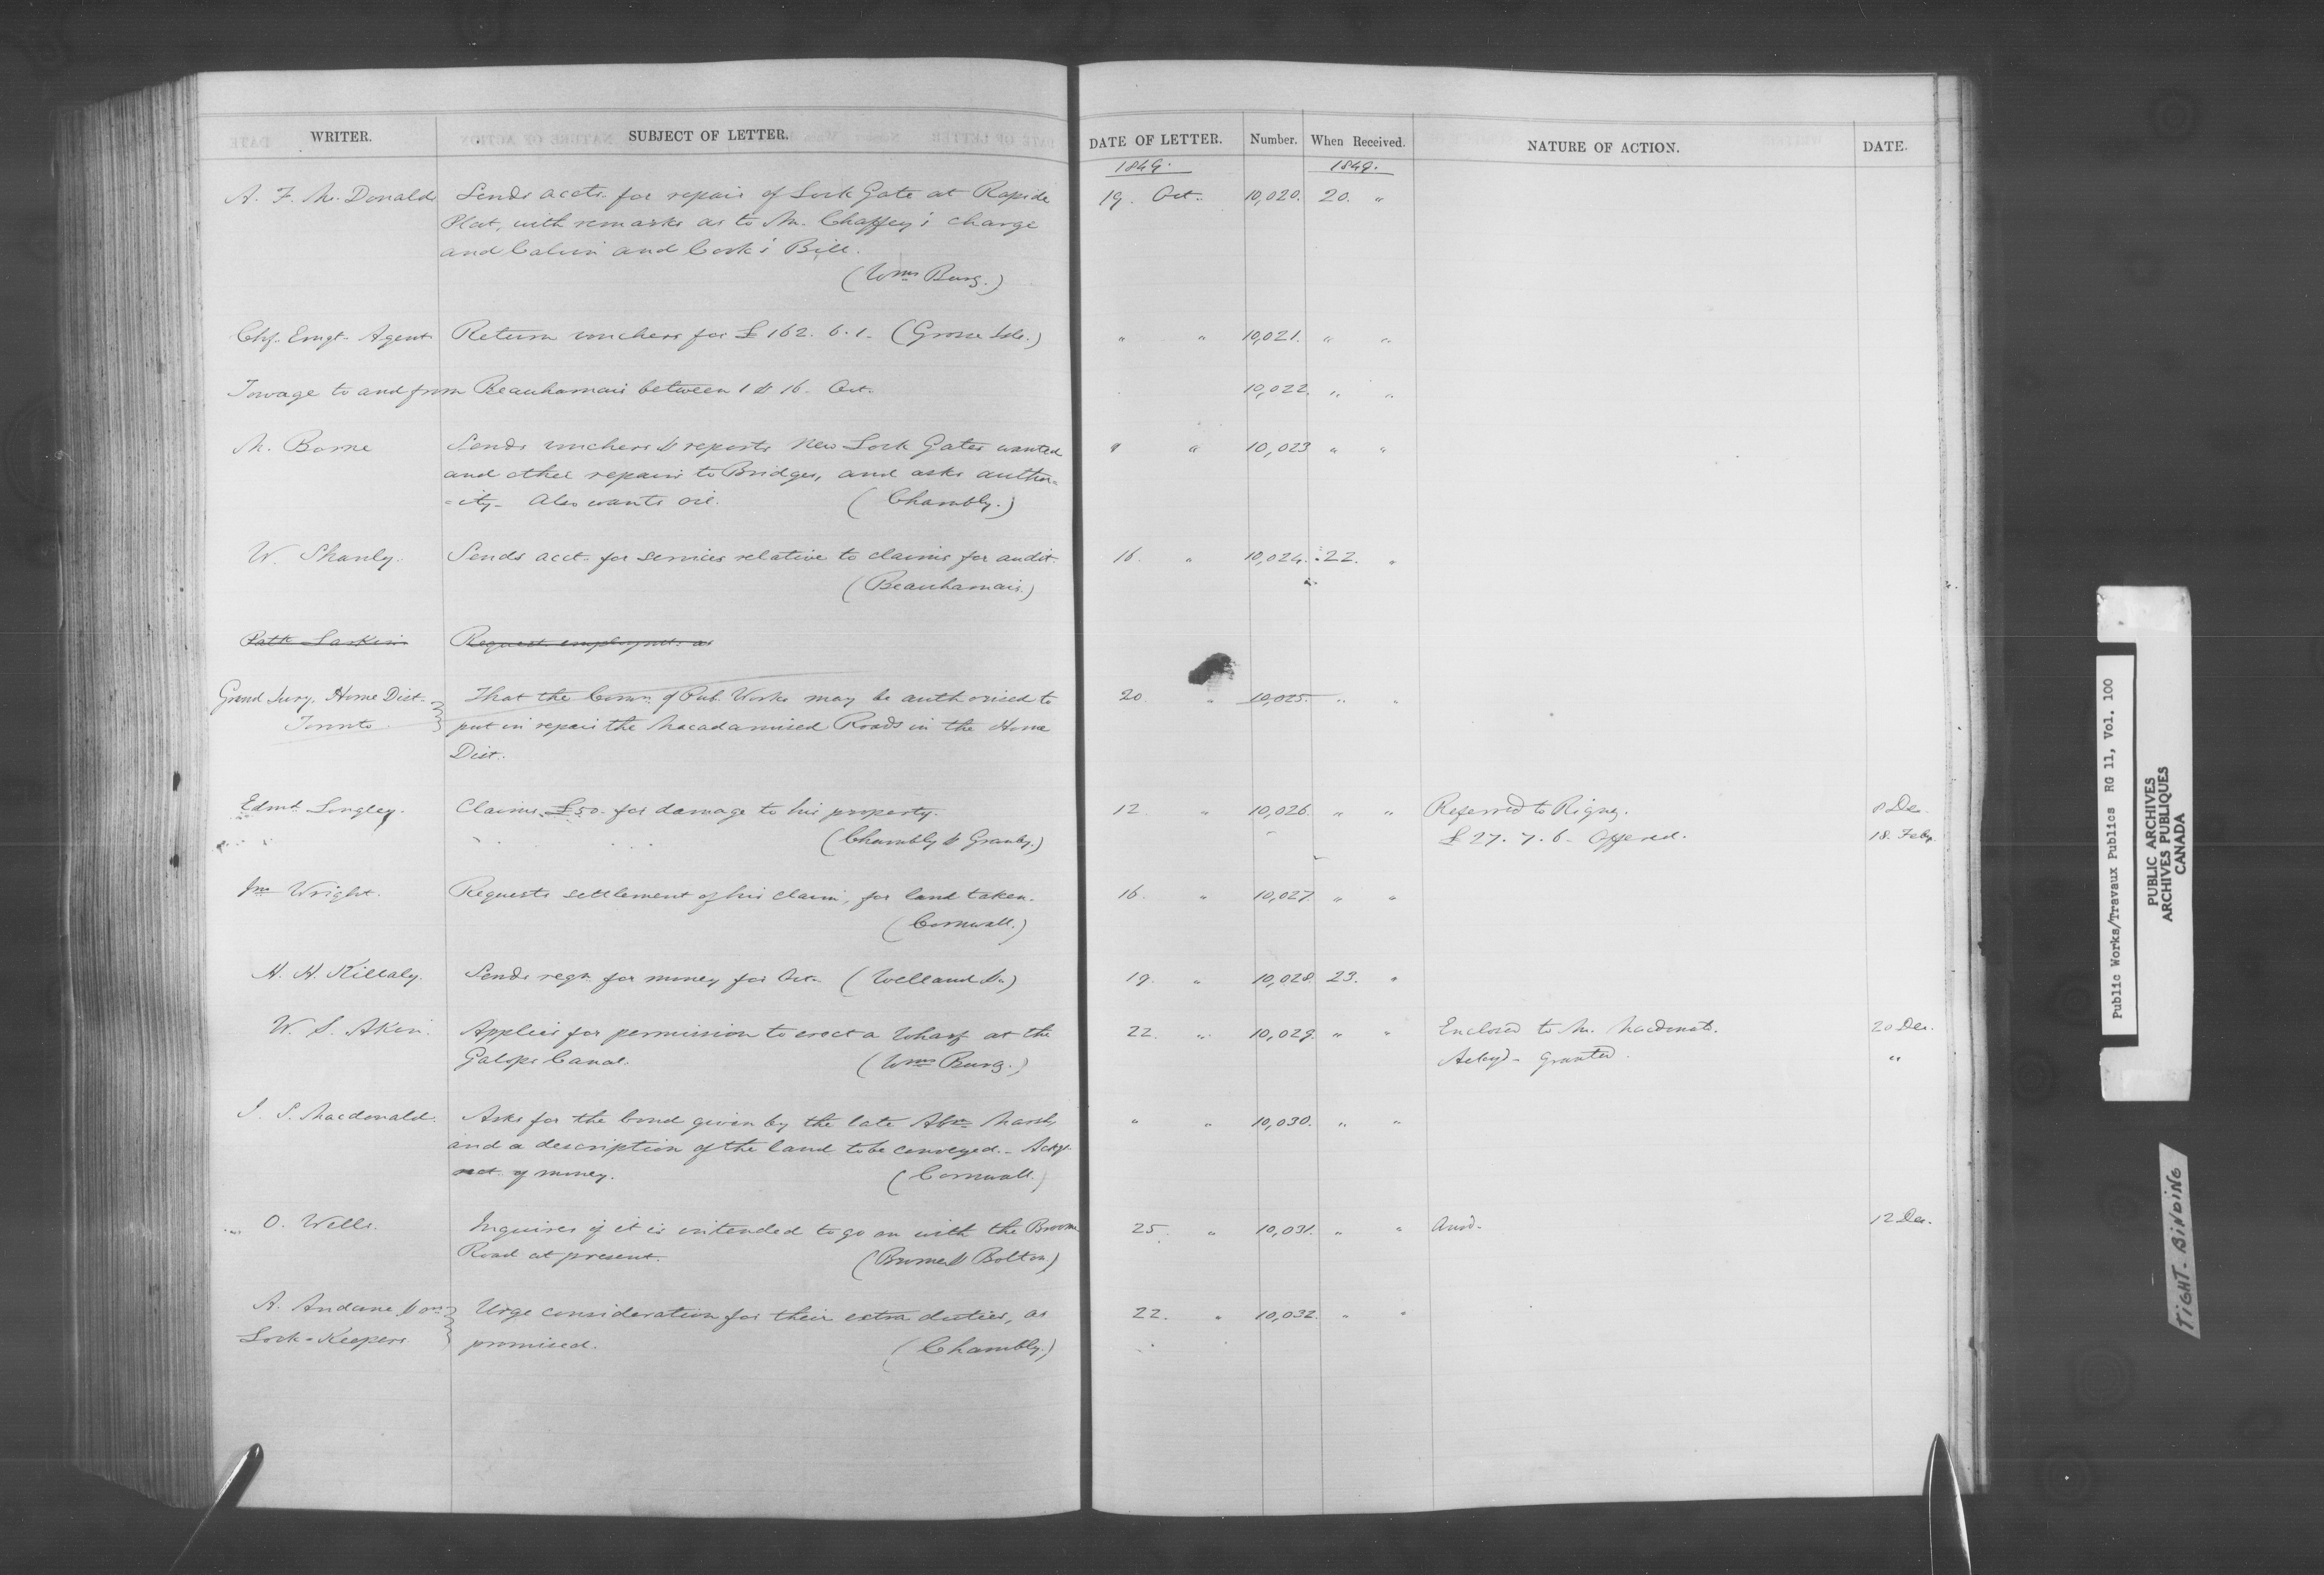 WRITER. SUBJECT OF LETTER. DATE OF LETTER. Number. When Received. NATURE OF ACTION. DATE.
1849. 1849.
A. F. McDonald Sends accts. for repair of Lock Gate at Rapide 19. Oct. 10,020. 20. "
Plat, with remarks as to Mr. Chaffey's charge
and Calvin and Cook's Bill.
(Wms Burg.)
Chf. Emgt. Agent Return vouchers for £162. 6. 1. (Grosse Isle.) " " 10,021. " "
Towage to and from Beauharnais between 1 & 16. Oct. 10,022. " "
M. Borne Sends vouchers & reports new Lock Gates wanted " 10,023 " "
and other repairs to Bridges, and asks author=
=ity. Also wants oil. (Chambly.)
W. Shanly. Sends acct. for services relative to claims for audit. 16. " 10,024. 22. "
(Beauharnais.)
Patk Larkin Request employmt. as
Grand Jury, Home Dist. That the Comrs. of Pub. Works may be authorised to 20 " 10,025. " "
Toronto put in repair the Macadamised Roads in the Home
Dist.
Edmd. Longley. Claims £50. for damage to his property. 12 " 10,026. " " Referred to Rigney. 8 Dec.
(Chambly & Granby.) £27. 7. 6. Offered. 18. Feby.
Jno Wright. Requests settlement of his claim, for land taken. 16. " 10,027. " "
(Cornwall.)
H. H. Killaly. Sends reqn. for money for Oct. (Welland &c) 19. " 10,028. 23. "
W. S. Akin. Applies for permission to erect a Wharf at the 22. " 10,029. " " Enclosed to Mr. 20 Dec.
Galops Canal. (Wms Burg.) Ackgd. granted. "
J. S. Macdonald. Asks for the bond given by the late Abm. Marsh, " " 10,030. " "
and a description of the land to be conveyed. - Ackgs.
rect. of money. (Cornwall.)
O. Wells. Inquires if it is intended to go on with the Broome 25. " 10,031. " " Ansd. 12 Dec.
Road at present. (Brome & Bolton)
A. & ors. Urge consideration for their extra duties, as 22. " 10,032. " "
Lock-Keepers promised. (Chambly.)
Public Works/Travaux Publics RG 11, Vol. 100
PUBLIC ARCHIVES
ARCHIVES PUBLIQUES
CANADA
TIGHT-BINDING